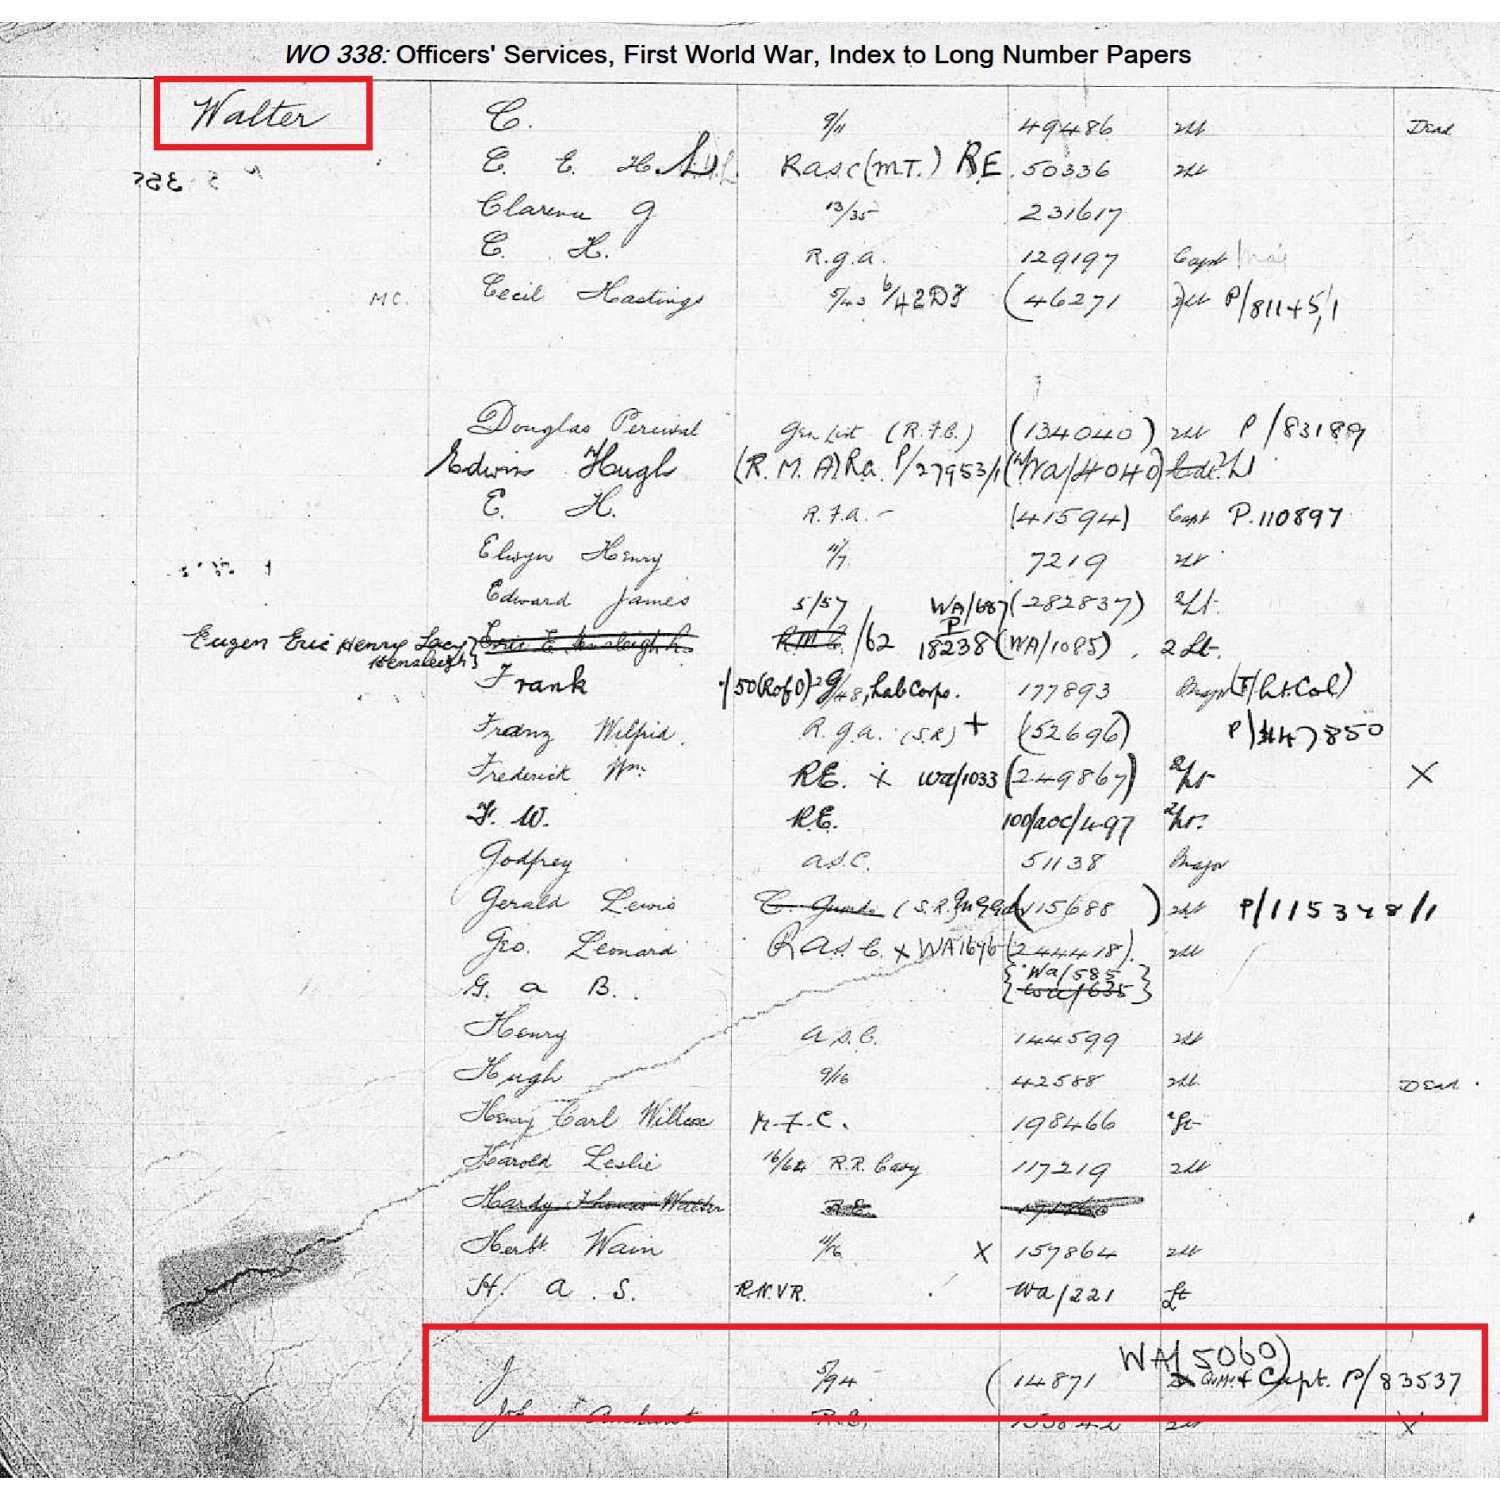 WO 338: Officers' Services, First World War, Index to Long Number Papers
Walter C. 9/11 49486 2Lt Dead
C. E. H. RASC (M.T.) RE. 50336 2Lt
Clarence G 13/35 231617
C. H. R.G.A. 129197 Capt
M.C. Cecil Hastings 5/43 6/42 (46271 2Lt P/81145/1
Douglas Percival Gen List (R.F.C.) (134040) 2Lt P/83189
Edwin Hugh (R.M.A) Ra P/27953/1 (Wa/4040)
E. H. R.F.A. - (41594) Capt P.110897
Elwyn Henry 4/7 7219 2Lt
Edward James 5/57 WA/687 (282837) 2/Lt.
Eugen Eric Henry Lacy Hensleigh} /62 P/18238 (WA/1085). 2 Lt.
Frank /50 (R of O) 29/48, Lab Corps. 177893 Major (T/Lt. Col)
Franz Wilfrid. R.G.A. (S.R) + (52696) P/147850
Frederick Wm. RE. X wa/1033 (249867) 2/Lt X
F. W. R.E. 100/aoc/497 2/Lt.
Godfrey A.S.C. 51138 Major
Gerald Lewis (S.R. (115688) 2Lt P/115348/1
Geo. Leonard RASC. x WA1696 (244418). 2Lt
G. A B. {Wa/585}
{wa/635}
Henry A.S.C. 144599 2Lt
Hugh 9/16 42588 2Lt. Dead.
Henry Carl Willcox R.F.C. 198466 2Lt
Harold Leslie 16/64 R.R. Cavy 117219 2Lt
Hardy Thomas Walter R.E.
Herbt. Wain 11/16 X 157864 2Lt
H. A. S. R.N.V.R. Wa/221 Lt
J 5/94 - (14871 WA/5060) Q.M. & Capt. P/83537
X